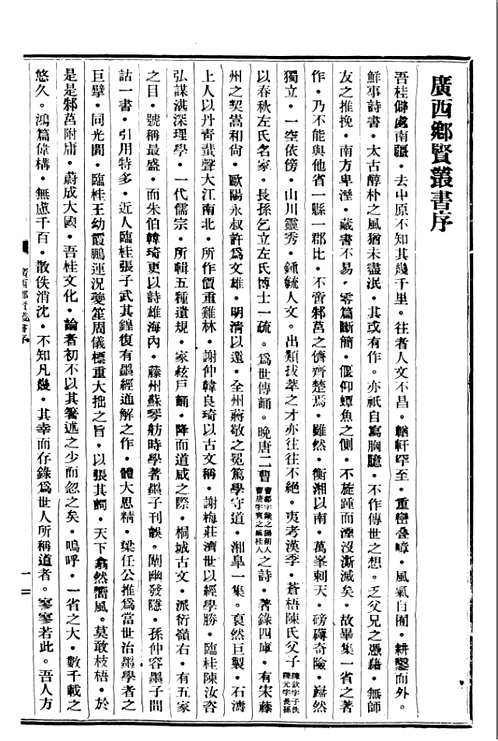 廣西鄉賢叢書序
吾桂僻處南疆・去中原不知其幾千里・往者人文不昌・輶軒罕至・重巒叠嶂・風氣自囿・耕鑿而外・
鮮事詩書・太古醇朴之風猶未盡泯・其或有作・亦祇自寫胸臆・不作傳世之想・乏父兄之憑藉・無師
友之推挽・南方卑溼・藏書不易・零篇斷簡・偃仰蟫魚之側・不旋踵而湮沒漸滅矣・故畢集一省之著
作・乃不能與他省一縣一郡比・不啻邾莒之儕齊楚焉・雖然・衡湘以南・萬峯刺天・磅礴奇險・巋然
獨立・一空依傍・山川靈秀・鍾毓人文・出類拔萃之才亦往往不絕・夷考漢季・蒼梧陳氏父子陳欽字子佚陳元字長孫
以春秋左氏名家・長孫乞立左氏博士一疏・爲世傳誦・晚唐二曹曹鄴字鄴之陽朔人曹唐字堯賓桂人之詩・著錄四庫・有宋藤
州之契嵩和尙・歐陽永叔許爲文雄・明清以還・全州蔣敬之冕篤學守道・湘皋一集・裒然巨製・石濤
上人以丹青蜚聲大江南北・所作價重雞林・謝仲韓良琦以古文稱・謝梅莊濟世以經學勝・臨桂陳汝咨
弘謀湛深理學・一代儒宗・所輯五種遺規・家絃戶誦・降而道咸之際・桐城古文・派衍嶺右・有五家
之目・號稱最盛・而朱伯韓琦更以詩雄海內・藤州蘇琴舫時學著墨子刊誤・闡幽發隱・孫仲容墨子閒
詁一書・引用特多・近人臨桂張子武其鍠復有墨經通解之作・體大思精・梁任公推爲當世治墨學者之
巨擘・同光間・臨桂王幼霞鵬運況夔笙周儀標重大拙之旨・以張其詞・天下翕然嚮風・莫敢枝梧・於
是是邾莒附庸・蔚成大國・吾桂文化・論者初不以其著述之少而忽之矣・嗚呼・一省之大・數千載之
悠久・鴻篇偉構・無慮千百・散佚消沈・不知凡幾・其幸而存錄爲世人所稱道者・寥寥若此・吾人方
廣西鄉賢叢書序
一